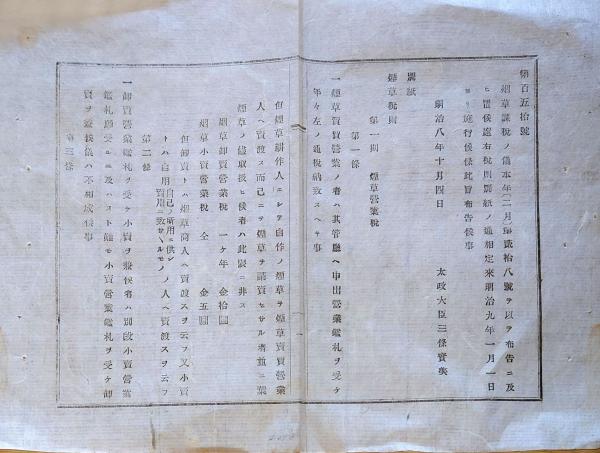 第百五拾號
烟草課税ノ儀本年二月第貳拾八號ヲ以テ布告ニ及
ヒ置候處右税則別紙ノ通相定來明治九年一月一日
ヨリ施行候條此旨布告候事
明治八年十月四日
太政大臣三條實美
別紙
煙草税則
第一則 煙草營業税
第一條
一煙草賣買營業ノ者ハ其管廳ヘ申出營業鑑札ヲ受ケ
年々左ノ通税納致スヘキ事
但煙草耕作人ニシテ自作ノ煙草ヲ煙草賣買營業
人ヘ賣渡ス而己ニテ煙草ヲ請賣セサル者並ニ葉
煙草ノ仲取扱ヒ候者ハ此限ニ非ス
煙草卸賣營業税 一ケ年 金拾圓
烟草小賣營業税 仝 金五圓
但卸賣トハ烟草商人ヘ賣渡スヲ云フ又小賣
トハ自用自己ノ所用ニ供シ賣用ニ致サヽルモノノ人ヘ賣渡スヲ云フ
第二條
一卸賣營業鑑札ヲ受ケ小賣ヲ兼候者ハ別段小賣營業
鑑札願受ニ及ハスト雖モ小賣營業鑑札ヲ受ケ卸
賣ヲ兼候儀ハ不相成候事
第三條